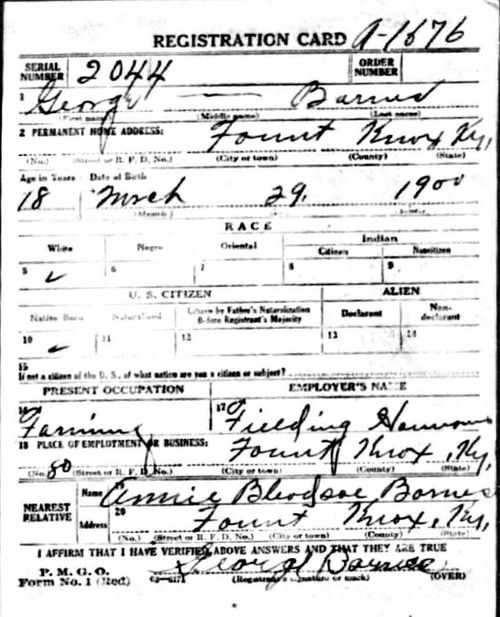 REGISTRATION CARD A-1676
SERIAL NUMBER 2044 ORDER NUMBER
1 George — Barnes
(First name) (Middle name) (Last name)
2 PERMANENT HOME ADDRESS: Fount Knox Ky,
(No.) (Street or R. F. D. No.) (City or town) (County) (State)
Age in Years Date of Birth
18 March 29, 1900
(Month)
RACE
White Negro Oriental Indian
Citizen Noncitizen
5 ✓ 6 7 8 9
U. S. CITIZEN ALIEN
Native Born Naturalized Citizen by Father's Naturalization Before Registrant's Majority Declarant Non-declarant
10 ✓ 11 12 13 14
15
If not a citizen of the U. S., of what nation are you a citizen or subject?
PRESENT OCCUPATION EMPLOYER'S NAME
16 Farming 17 Fielding
18 PLACE OF EMPLOYMENT OR BUSINESS: Fount Knox, Ky,
(No.) (Street or R. F. D. No.) (City or town) (County) (State)
NEAREST RELATIVE Name 19 Annie Bledsoe Barnes
Address 20 Fount Knox, Ky,
(No.) (Street or R. F. D. No.) (City or town) (County) (State)
I AFFIRM THAT I HAVE VERIFIED ABOVE ANSWERS AND THAT THEY ARE TRUE
P. M. G. O.
Form No. 1 (Red) George Barnes
(Registrant's signature or mark) (OVER)